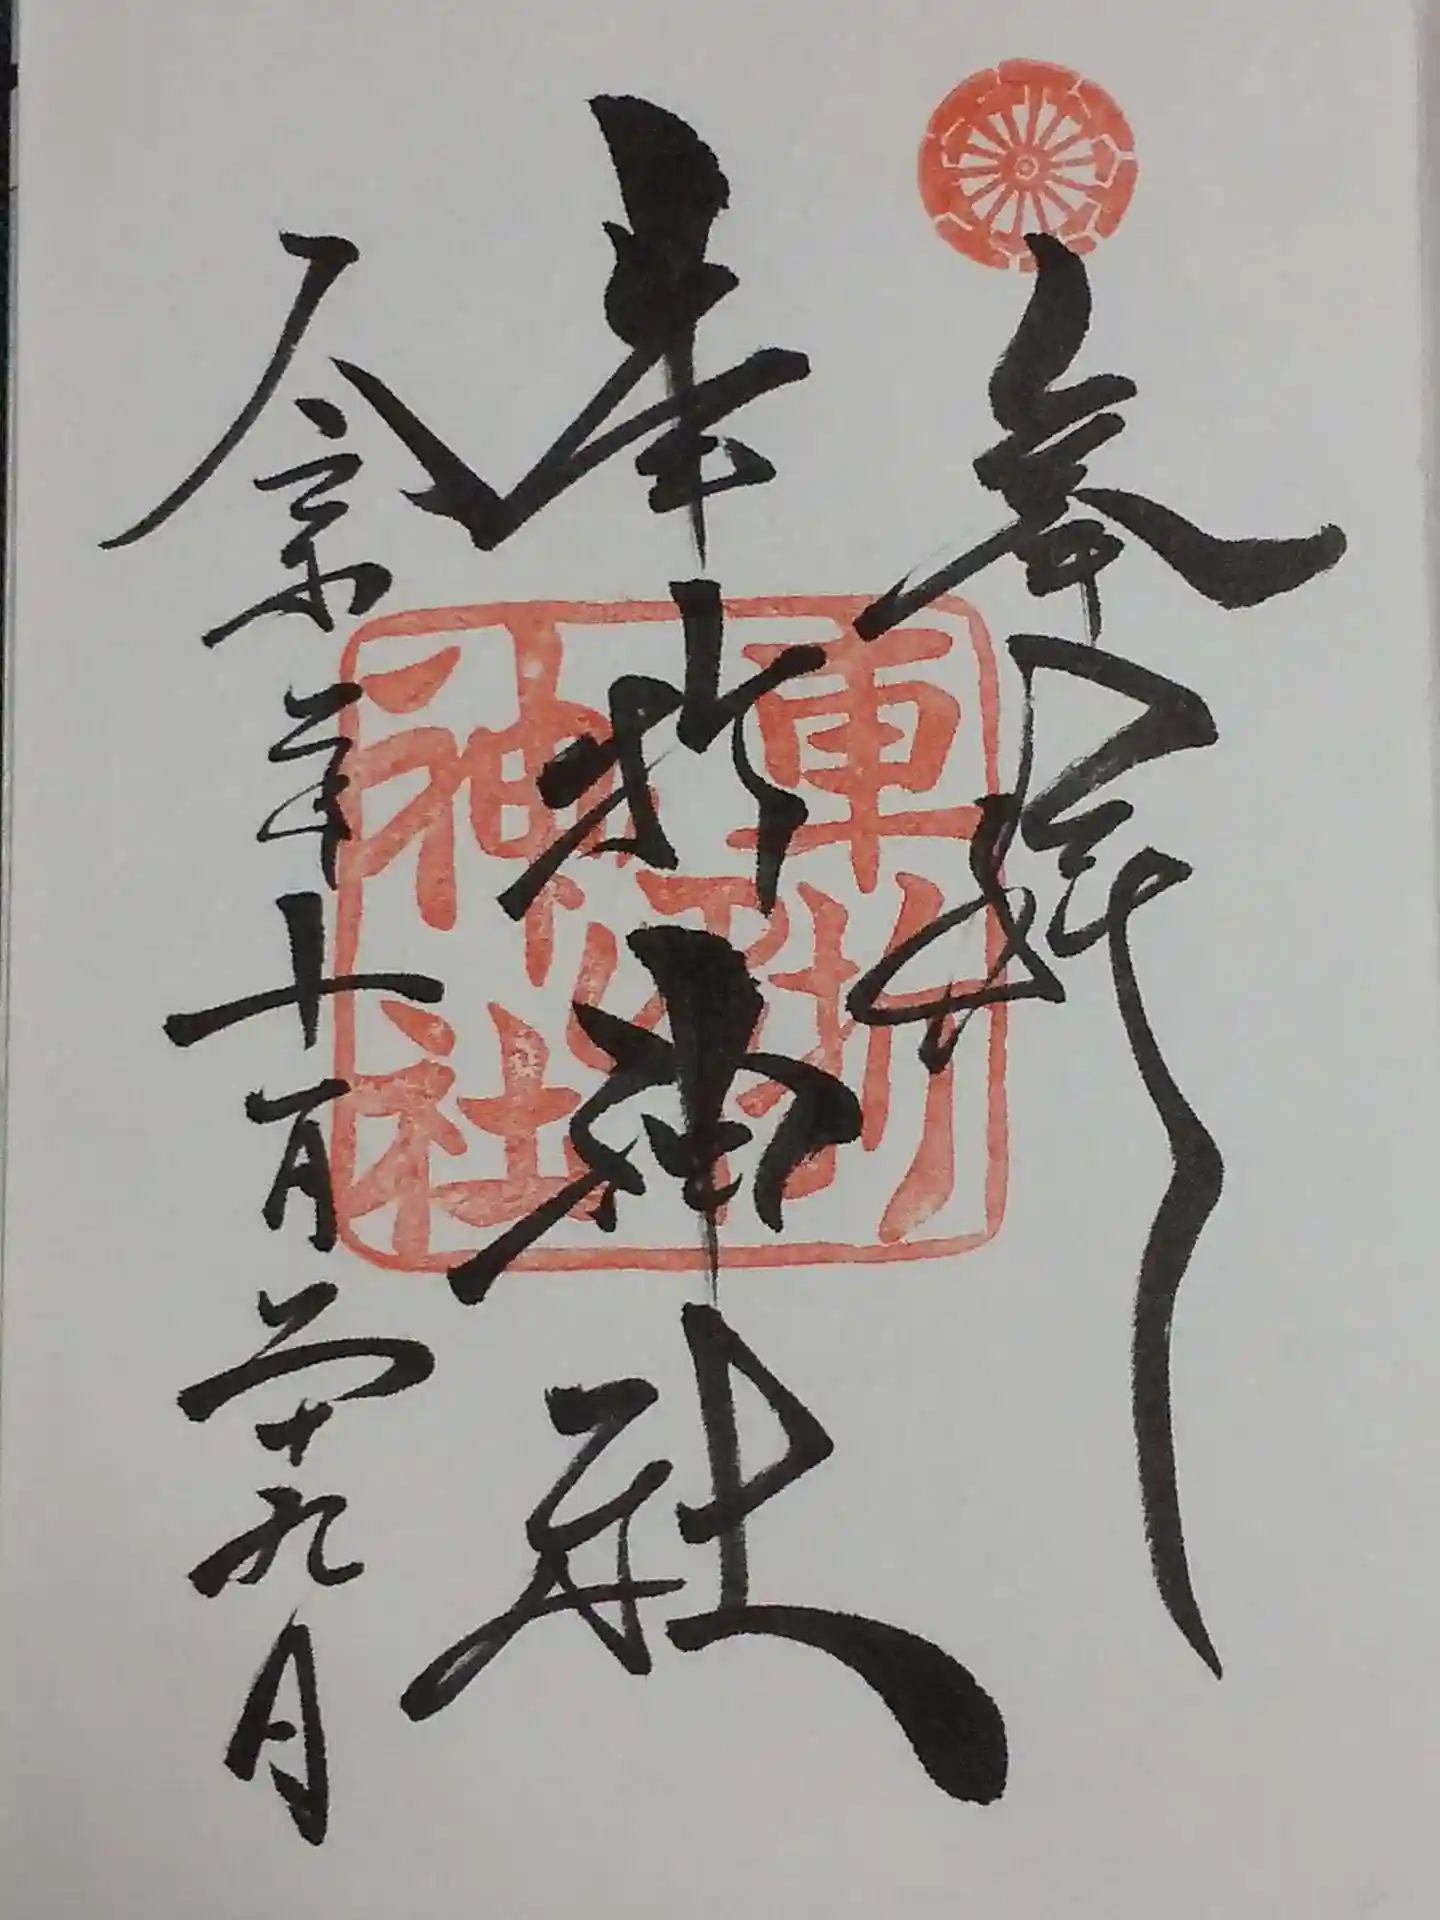 奉拝
車折神社
令和 年十一月二十九日
車折
神社